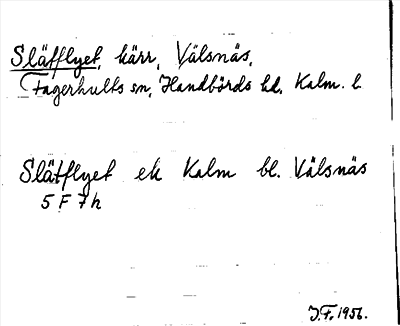 Slätflyet, kärr, Välsnäs,
Fagerhults sn, Handbörds hd, Kalm. l.
Slätflyet ek Kalm bl. Välsnäs
5 F 7 h
J.F. 1956.